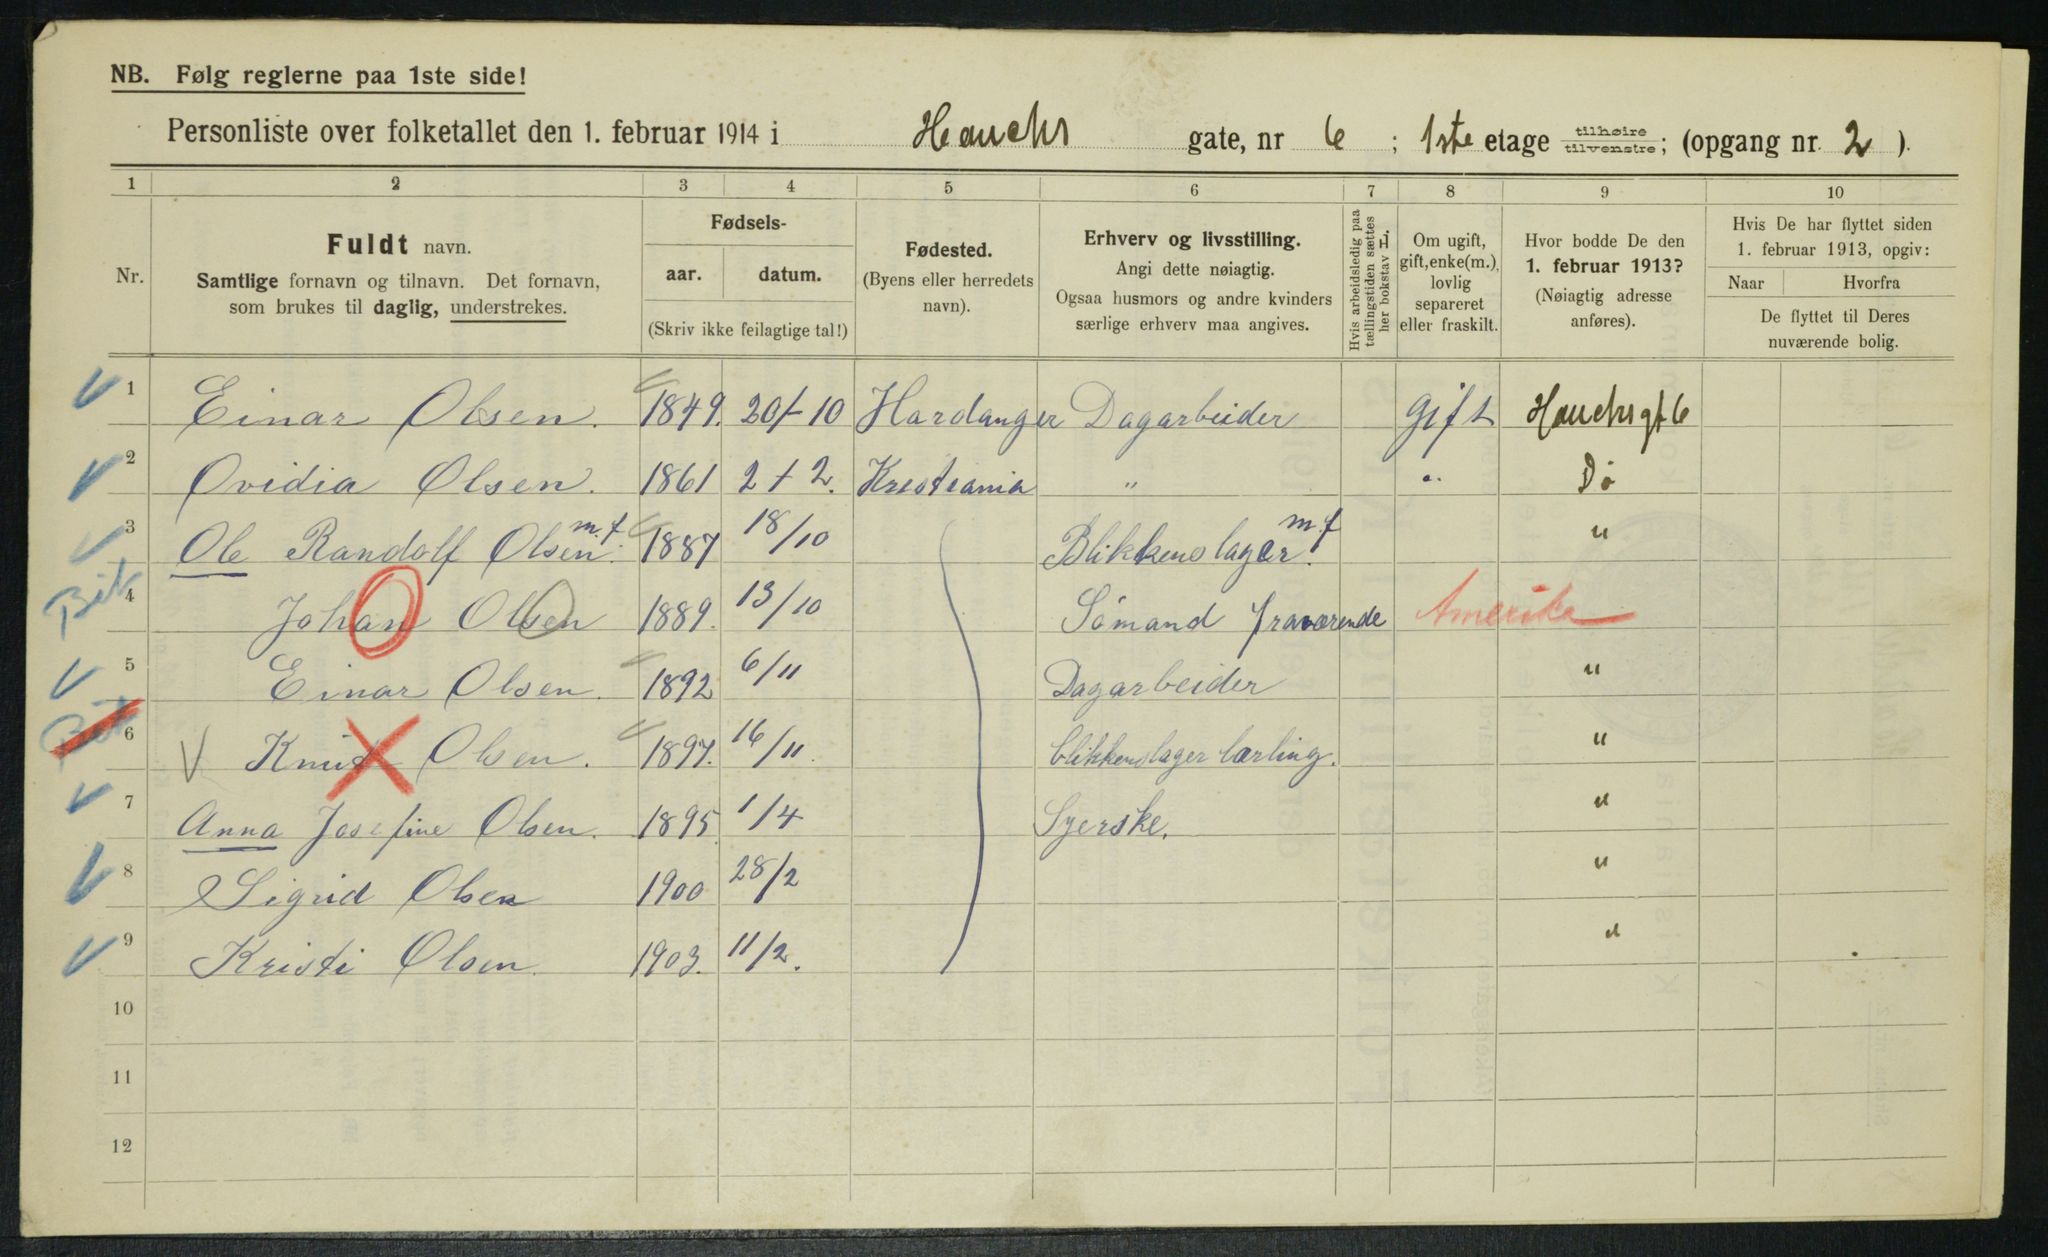 NB. Følg reglerne paa 1ste side!
Personliste over folketallet den 1. februar 1914 i Hauchs gate, nr 6 ; 1ste etage tilhøire tilvenstre; (opgang nr. 2 ).
1 2 3 4 5 6 7 8 9 10
Nr.
Fuldt navn.
Samtlige fornavn og tilnavn. Det fornavn,
som brukes til daglig, understrekes.
Fødsels-
aar. datum.
(Skriv ikke feilagtige tal!)
Fødested.
(Byens eller herredets
navn).
Erhverv og livsstilling.
Angi dette nøiagtig.
Ogsaa husmors og andre kvinders
særlige erhverv maa angives.
Hvis arbeidsledig paa
tællingstiden sættes
her bokstav L.
Om ugift,
gift, enke(m.),
lovlig
separeret
eller fraskilt.
Hvor bodde De den
1. februar 1913?
(Nøiagtig adresse
anføres).
Hvis De har flyttet siden
1. februar 1913, opgiv:
Naar Hvorfra
De flyttet til Deres
nuværende bolig.
1 Einar Olsen. 1849. 20/-10 Hardanger Dagarbeider gift Hauchsgt 6
2 Ovidia Olsen. 1861 2 + 2. Kristiania " " Do
3 Ole Randolf Olsen m.f. 1887 18/10 Blikkenslager. m.f "
Bit 4 Johan Olsen 1889. 13/10 Sömand fraværende Amerika
5 Einar Olsen. 1892 6/11 Dagarbeider "
Bit 6 Knut Olsen. 1897. 16/11. blikkenslager lærling. "
7 Anna Josefine Olsen. 1895 1/4 Syerske. "
8 Sigrid Olsen 1900 28/2 "
9 Kristi Olsen. 1903. 11/2. "
10
11
12